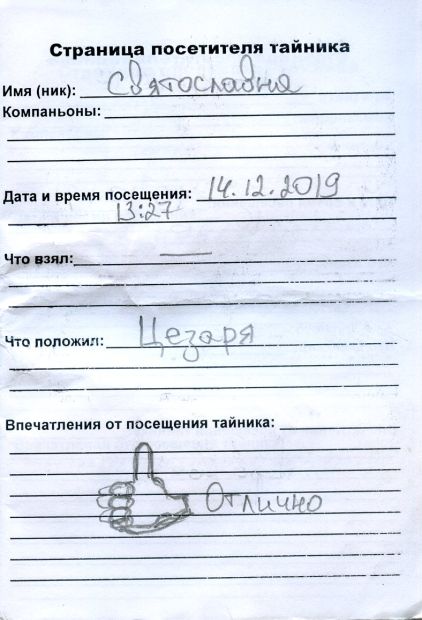 Страница посетителя тайника
Имя (ник): Святославна
Компаньоны:
Дата и время посещения: 14.12.2019
13:27
Что взял: —
Что положил: Цезаря
Впечатления от посещения тайника:
Отлично